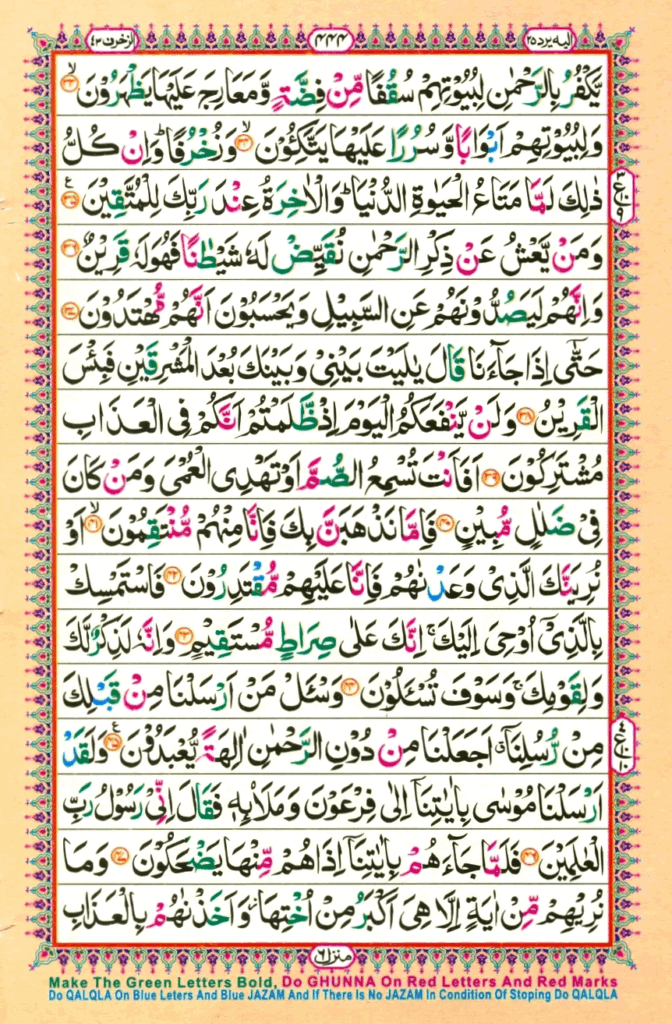 اليه يرد ٢٥
٤٤٤
الزخرف ٤٣
يَّكْفُرُ بِالرَّحْمٰنِ لِبُيُوْتِهِمْ سُقُفًا مِّنْ فِضَّةٍ وَّمَعَارِجَ عَلَيْهَا يَظْهَرُوْنَ ۙ‏﴿۳۳﴾
وَلِبُيُوْتِهِمْ اَبْوَابًا وَّسُرُرًا عَلَيْهَا يَتَّكِـُٔوْنَ ۙ‏﴿۳۴﴾ وَزُخْرُفًا ؕ وَاِنْ كُلُّ
ذٰلِكَ لَمَّا مَتَاعُ الْحَيٰوةِ الدُّنْيَا ؕ وَالْاٰخِرَةُ عِنْدَ رَبِّكَ لِلْمُتَّقِيْنَ ﴿۳۵﴾ ع
وَمَنْ يَّعْشُ عَنْ ذِكْرِ الرَّحْمٰنِ نُقَيِّضْ لَهٗ شَيْطٰنًا فَهُوَ لَهٗ قَرِيْنٌ ﴿۳۶﴾
وَاِنَّهُمْ لَيَصُدُّوْنَهُمْ عَنِ السَّبِيْلِ وَيَحْسَبُوْنَ اَنَّهُمْ مُّهْتَدُوْنَ ﴿۳۷﴾
حَتّٰۤى اِذَا جَآءَنَا قَالَ يٰلَيْتَ بَيْنِيْ وَبَيْنَكَ بُعْدَ الْمَشْرِقَيْنِ فَبِئْسَ
الْقَرِيْنُ ﴿۳۸﴾ وَلَنْ يَّنْفَعَكُمُ الْيَوْمَ اِذْ ظَّلَمْتُمْ اَنَّكُمْ فِى الْعَذَابِ
مُشْتَرِكُوْنَ ﴿۳۹﴾ اَفَاَنْتَ تُسْمِعُ الصُّمَّ اَوْ تَهْدِى الْعُمْىَ وَمَنْ كَانَ
فِىْ ضَلٰلٍ مُّبِيْنٍ ﴿۴۰﴾ فَاِمَّا نَذْهَبَنَّ بِكَ فَاِنَّا مِنْهُمْ مُّنْتَقِمُوْنَ ۙ‏﴿۴۱﴾ اَوْ
نُرِيَنَّكَ الَّذِىْ وَعَدْنٰهُمْ فَاِنَّا عَلَيْهِمْ مُّقْتَدِرُوْنَ ﴿۴۲﴾ فَاسْتَمْسِكْ
بِالَّذِىْۤ اُوْحِىَ اِلَيْكَ ۚ اِنَّكَ عَلٰى صِرَاطٍ مُّسْتَقِيْمٍ ﴿۴۳﴾ وَاِنَّهٗ لَذِكْرٌ لَّكَ
وَلِقَوْمِكَ ۚ وَسَوْفَ تُسْـَٔلُوْنَ ﴿۴۴﴾ وَسْـَٔلْ مَنْ اَرْسَلْنَا مِنْ قَبْلِكَ
مِنْ رُّسُلِنَاۤ اَجَعَلْنَا مِنْ دُوْنِ الرَّحْمٰنِ اٰلِهَةً يُّعْبَدُوْنَ ﴿۴۵﴾ ع وَلَقَدْ
اَرْسَلْنَا مُوْسٰى بِاٰيٰتِنَاۤ اِلٰى فِرْعَوْنَ وَمَلَا۟ئِهٖ فَقَالَ اِنِّىْ رَسُوْلُ رَبِّ
الْعٰلَمِيْنَ ﴿۴۶﴾ فَلَمَّا جَآءَهُمْ بِاٰيٰتِنَاۤ اِذَا هُمْ مِّنْهَا يَضْحَكُوْنَ ﴿۴۷﴾ وَمَا
نُرِيْهِمْ مِّنْ اٰيَةٍ اِلَّا هِىَ اَكْبَرُ مِنْ اُخْتِهَا ۡ وَاَخَذْنٰهُمْ بِالْعَذَابِ
منزل ٦
Make The Green Letters Bold, Do GHUNNA On Red Letters And Red Marks
Do QALQLA On Blue Leters And Blue JAZAM And If There Is No JAZAM In Condition Of Stoping Do QALQLA